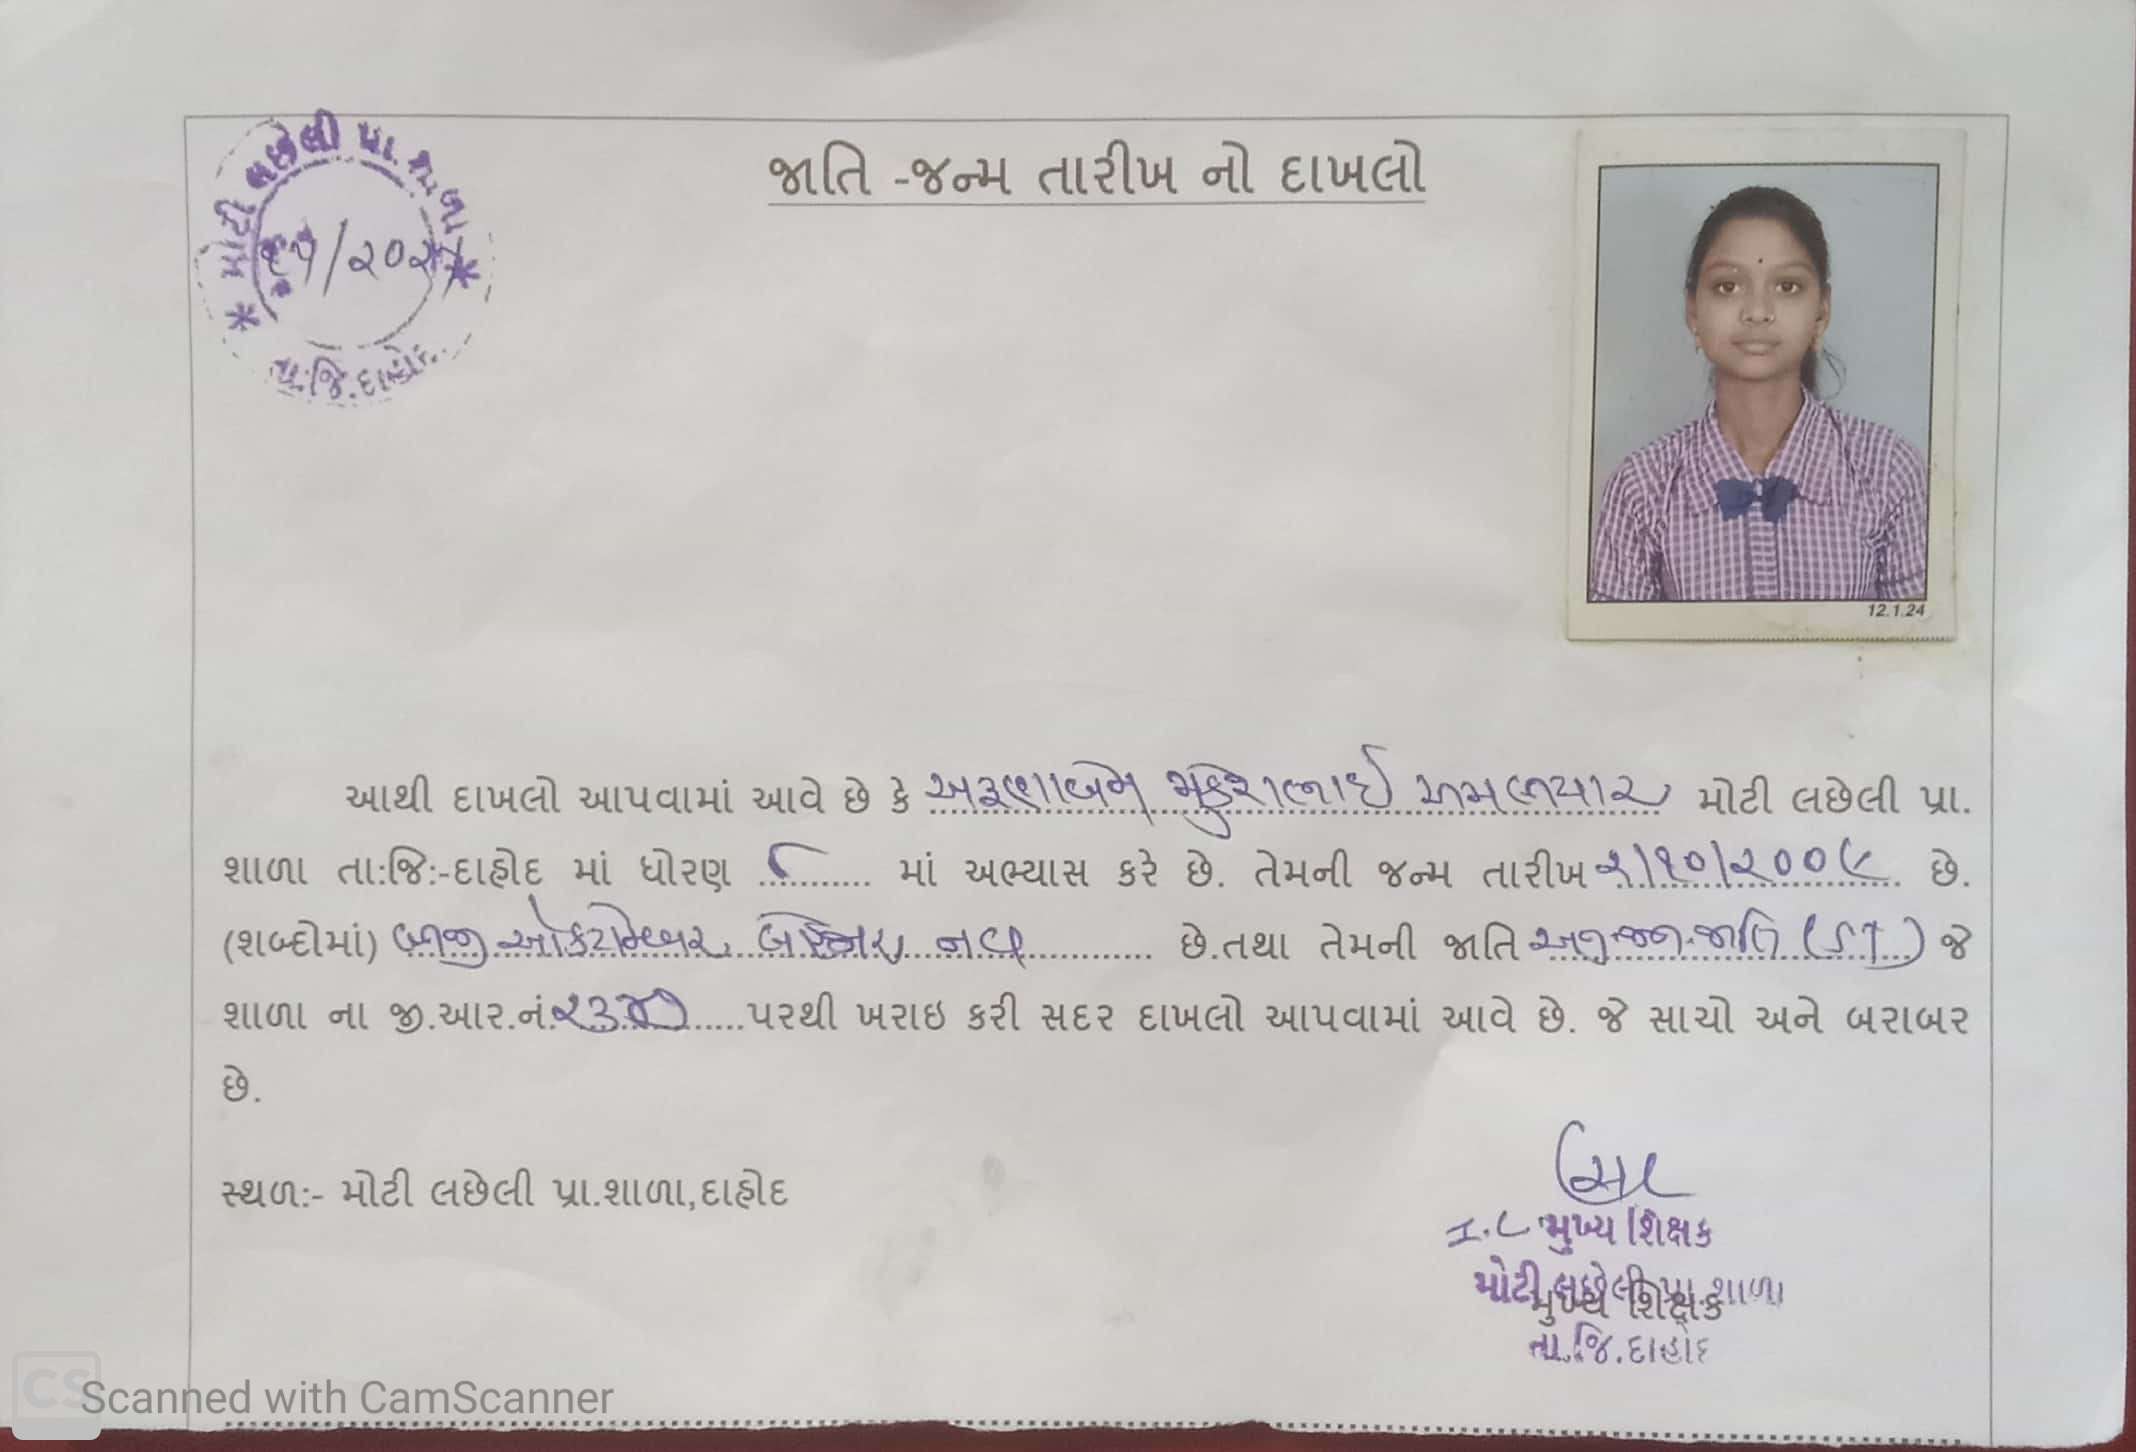 મોટી લછેલી પ્રા. શાળા
તા.જિ.દાહોદ
જાતિ -જન્મ તારીખ નો દાખલો
12.1.24
આથી દાખલો આપવામાં આવે છે કે અરૂણાબેન મુકેશભાઈ મોટી લછેલી પ્રા.
શાળા તા:જિ:-દાહોદ માં ધોરણ ૮ માં અભ્યાસ કરે છે. તેમની જન્મ તારીખ ૨/૧૦/૨૦૦૯ છે.
(શબ્દોમાં) બીજી ઓકટોમ્બર બે હજાર નવ છે.તથા તેમની જાતિ અનુ.જન.જાતિ (ST) જે
શાળા ના જી.આર.નં. પરથી ખરાઇ કરી સદર દાખલો આપવામાં આવે છે. જે સાચો અને બરાબર
છે.
સ્થળ:- મોટી લછેલી પ્રા.શાળા,દાહોદ
I.C મુખ્ય શિક્ષક
મોટી લછેલી પ્રા.શાળા
મુખ્ય શિક્ષક
તા.જિ.દાહોદ
CS Scanned with CamScanner